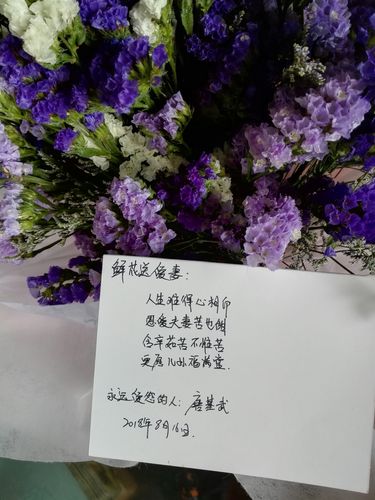 鲜花送爱妻:
人生难得心相印
恩爱夫妻苦也甜
含辛茹苦不惧苦
更喜儿孙福满堂.
永远爱您的人: 唐基武
2018年8月16日.